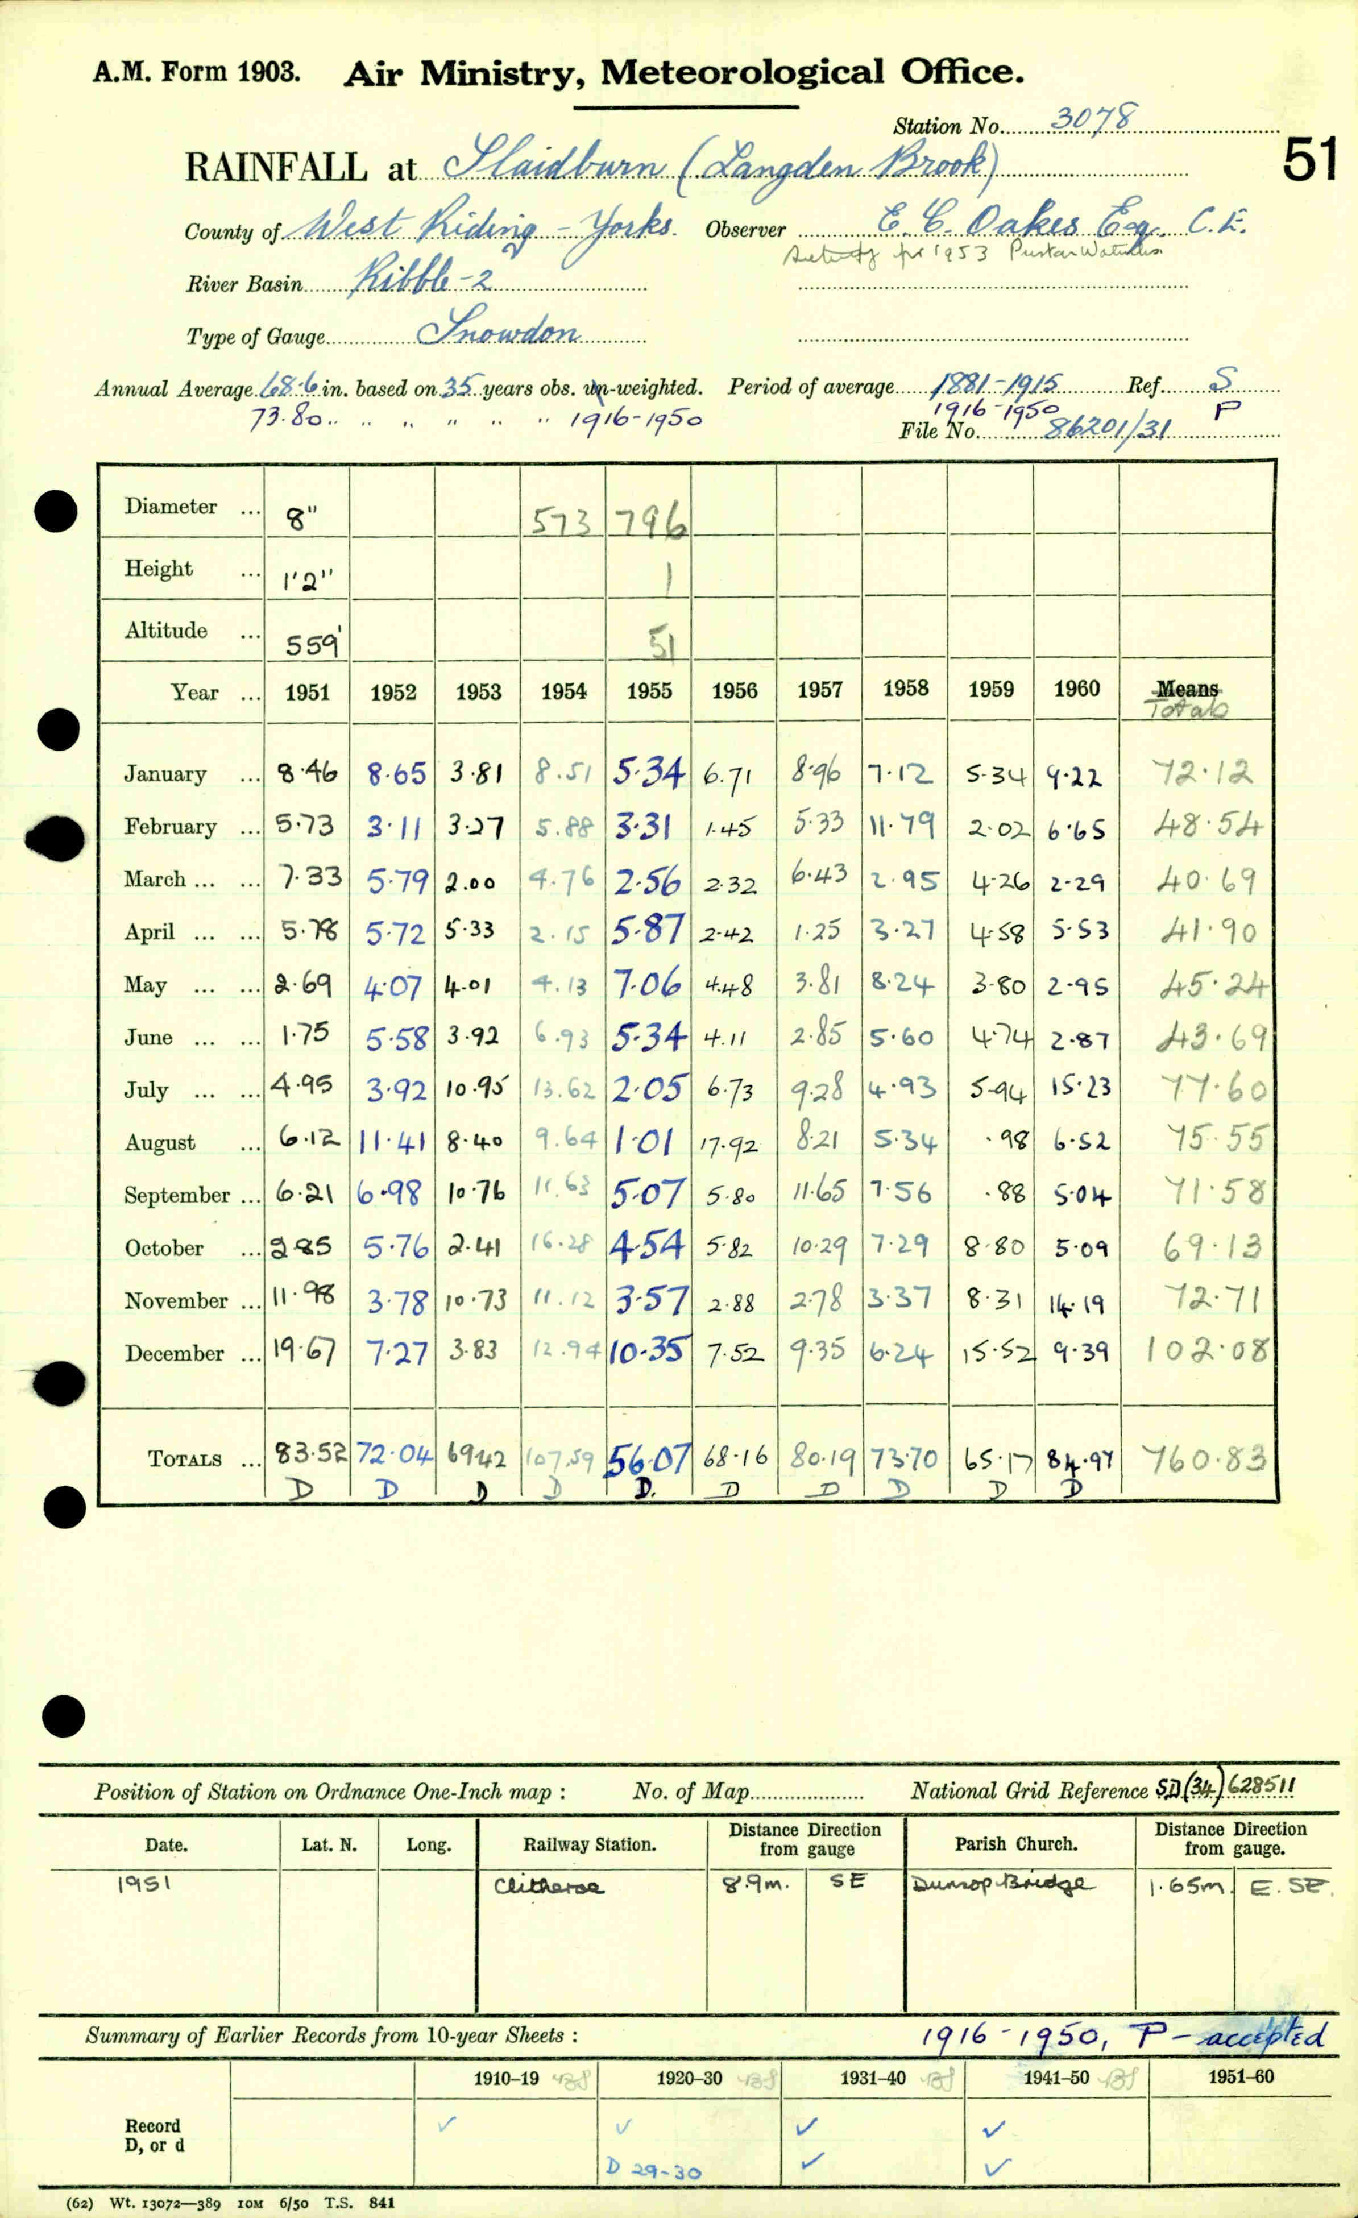 A.M. Form 1903. Air Ministry, Meteorological Office.
Station No. 3078
RAINFALL at Slaidburn (Langden Brook)
51
County of West Riding - Yorks. Observer E. C. Oakes Esq. C.E.
for 1953
River Basin Ribble-2
Type of Gauge Snowdon
Annual Average 68.6 in. based on 35 years obs. un-weighted. Period of average 1881-1915 Ref. S
73.80 " " " " " " 1916-1950 1916-1950 P
File No. 86201/31
Diameter ... 8" 573 796
Height ... 1'2" 1
Altitude ... 559' 51
Year ... 1951 1952 1953 1954 1955 1956 1957 1958 1959 1960 Means
Totals
January ... 8.46 8.65 3.81 8.51 5.34 6.71 8.96 7.12 5.34 9.22 72.12
February ... 5.73 3.11 3.27 5.88 3.31 1.45 5.33 11.79 2.02 6.65 48.54
March ... ... 7.33 5.79 2.00 4.76 2.56 2.32 6.43 2.95 4.26 2.29 40.69
April ... ... 5.78 5.72 5.33 2.15 5.87 2.42 1.25 3.27 4.58 5.53 41.90
May ... ... 2.69 4.07 4.01 4.13 7.06 4.48 3.81 8.24 3.80 2.95 45.24
June ... ... 1.75 5.58 3.92 6.93 5.34 4.11 2.85 5.60 4.74 2.87 43.69
July ... ... 4.95 3.92 10.95 13.62 2.05 6.73 9.28 4.93 5.94 15.23 77.60
August ... 6.12 11.41 8.40 9.64 1.01 17.92 8.21 5.34 .98 6.52 75.55
September ... 6.21 6.98 10.76 11.63 5.07 5.80 11.65 7.56 .88 5.04 71.58
October ... 2.85 5.76 2.41 16.28 4.54 5.82 10.29 7.29 8.80 5.09 69.13
November ... 11.98 3.78 10.73 11.12 3.57 2.88 2.78 3.37 8.31 14.19 72.71
December ... 19.67 7.27 3.83 12.94 10.35 7.52 9.35 6.24 15.52 9.39 102.08
TOTALS ... 83.52 72.04 69.42 107.59 56.07 68.16 80.19 73.70 65.17 84.97 760.83
D D D D D. D D D D D
Position of Station on Ordnance One-Inch map : No. of Map National Grid Reference SD(34) 628511
Date. Lat. N. Long. Railway Station. Distance from gauge Direction Parish Church. Distance from gauge. Direction
1951 Clitheroe 8.9m. SE Dunsop Bridge 1.65m. E. SE.
Summary of Earlier Records from 10-year Sheets : 1916-1950, P - accepted
1910–19 1920–30 1931–40 1941–50 1951–60
Record ✓ ✓ ✓ ✓
D, or d D 29-30 ✓ ✓
(62) Wt. 13072—389 10M 6/50 T.S. 841